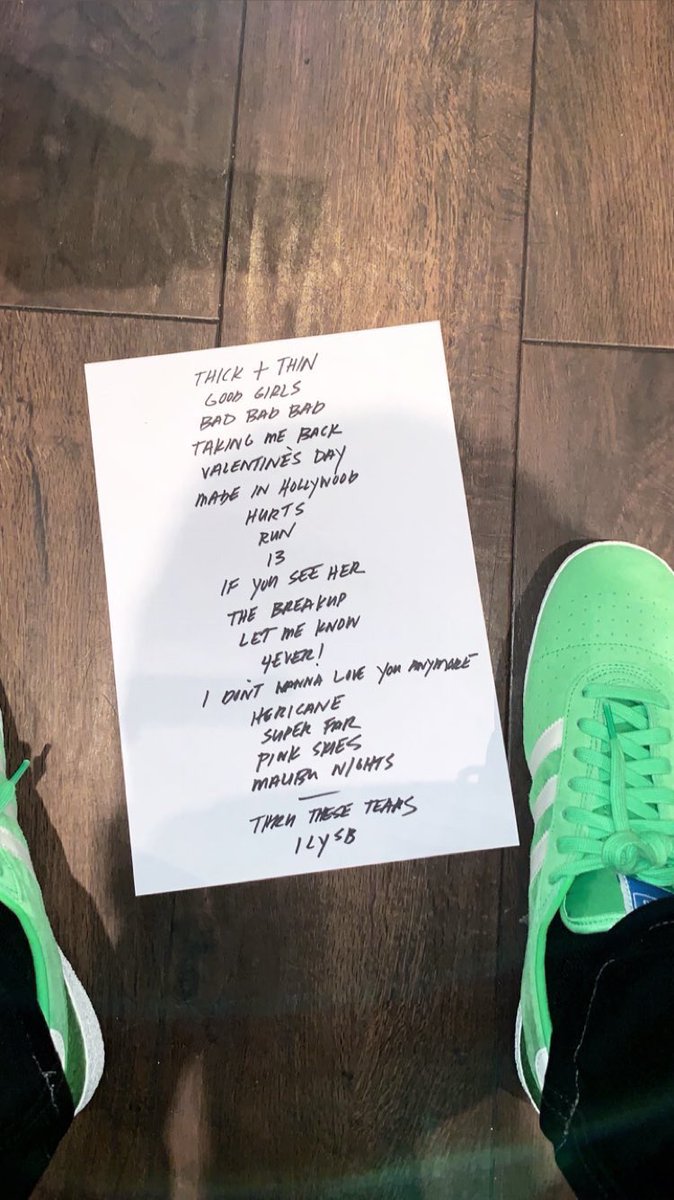 THICK + THIN
GOOD GIRLS
BAD BAD BAD
TAKING ME BACK
VALENTINE'S DAY
MADE IN HOLLYWOOD
HURTS
RUN
13
IF YOU SEE HER
THE BREAKUP
LET ME KNOW
4EVER!
I DON'T WANNA LOVE YOU ANYMORE
HERICANE
SUPER FAR
PINK SKIES
MALIBU NIGHTS
THRU THESE TEARS
ILYSB